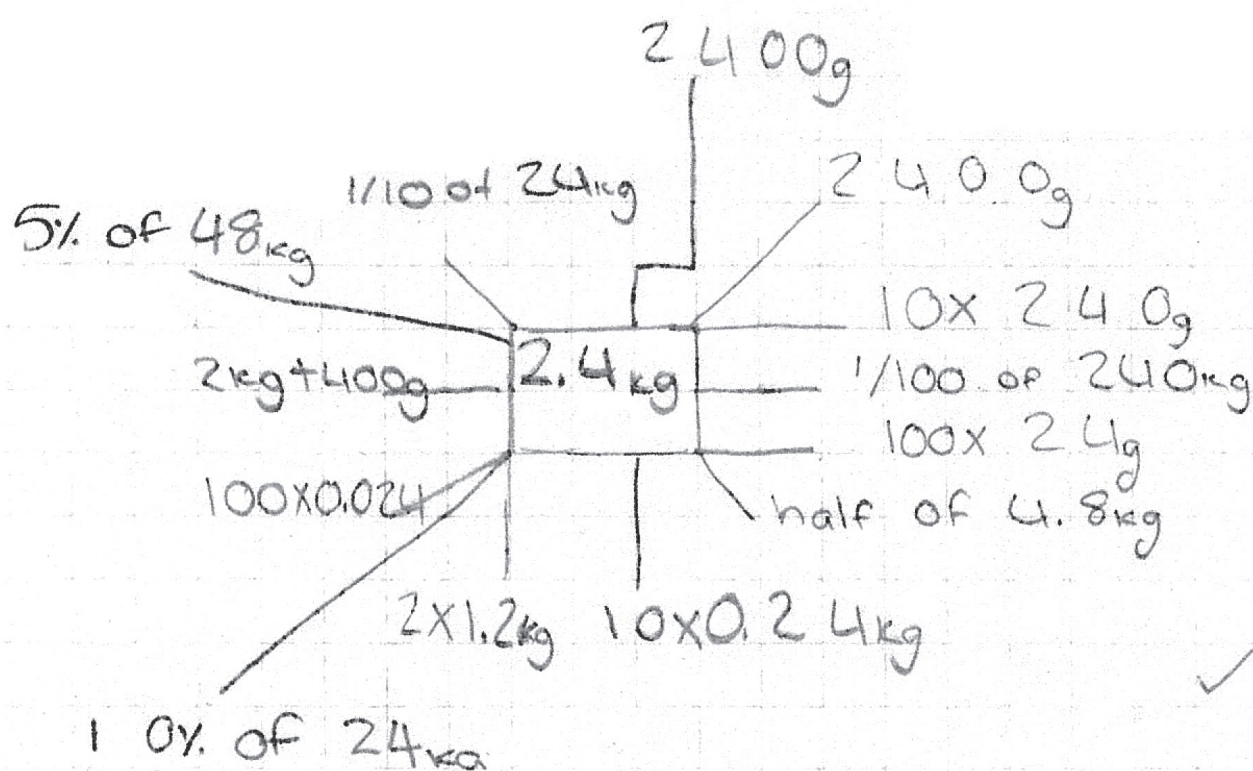 2400g
1/10 of 24kg
2400g
5% of 48kg
10x 240g
2kg+400g
2.4kg
1/100 of 240kg
100x 24g
100x0.024
half of 4.8kg
2x1.2kg
10x0.24kg
10% of 24kg